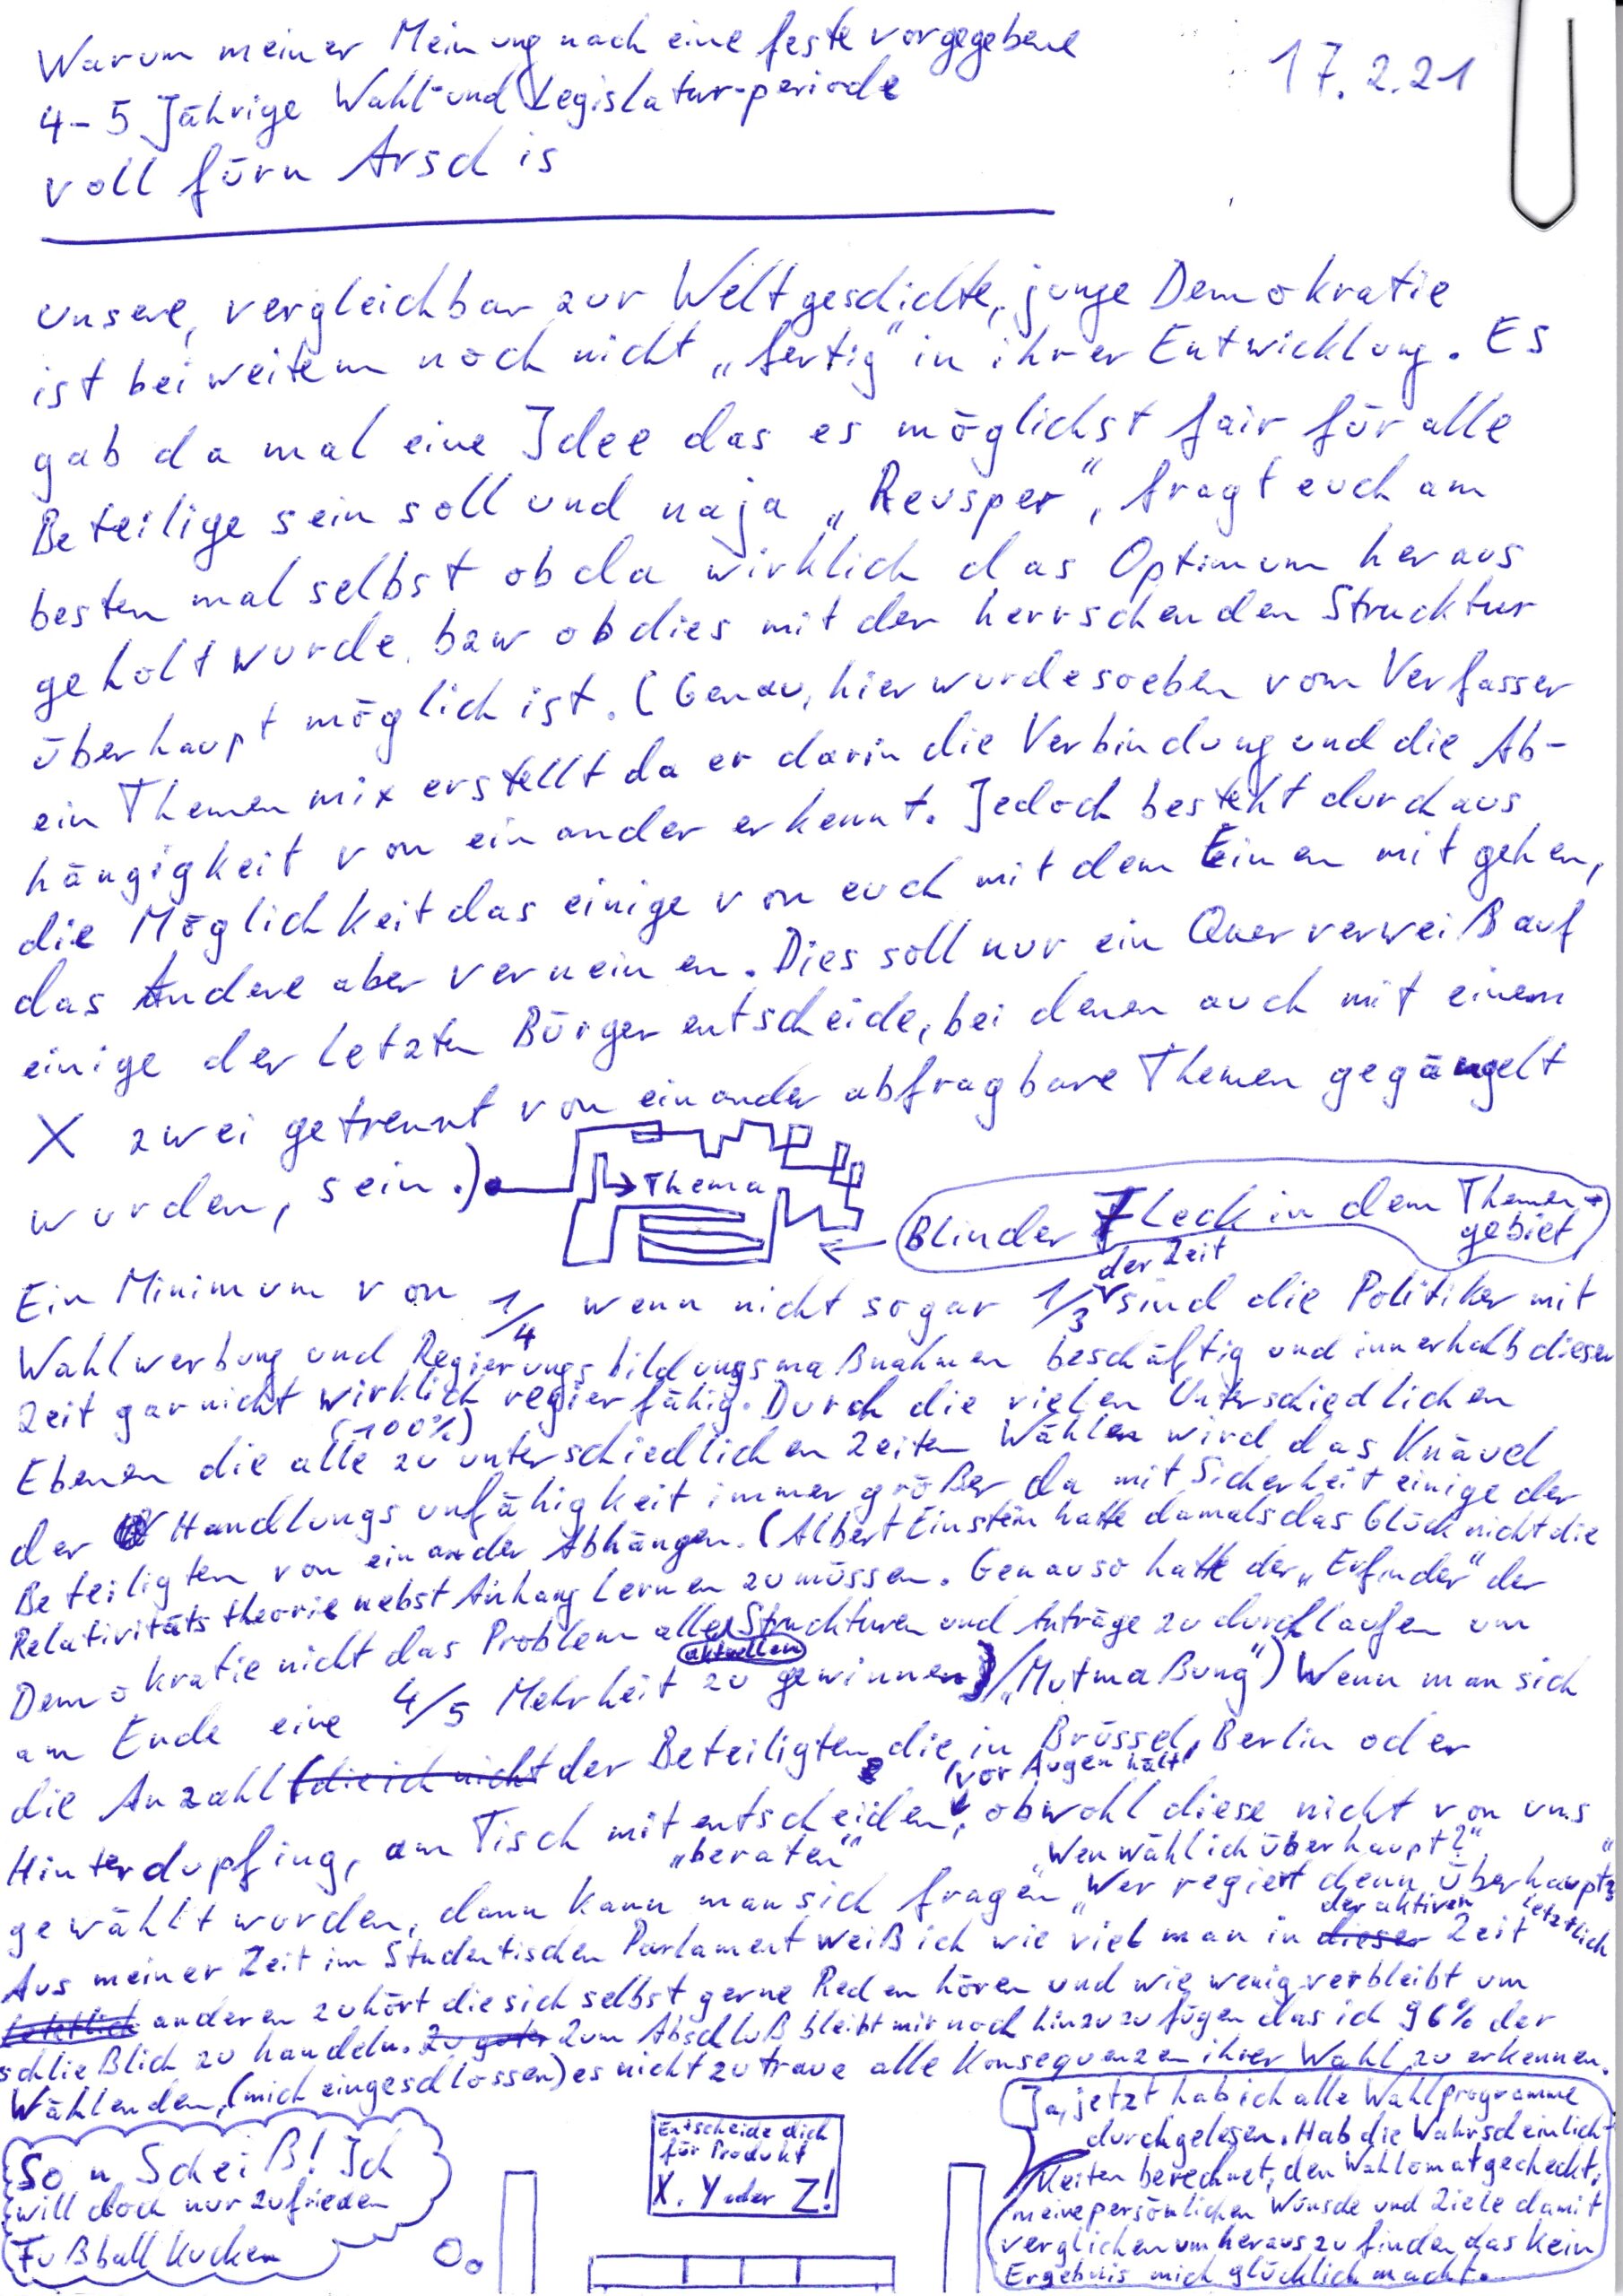 Warum meiner Meinung nach eine feste vorgegebene
17.2.21
4-5 Jährige Wahl- und Legislatur-periode
voll fürn Arsch is
Unsere, vergleichbar zur Weltgeschichte, junge Demokratie
ist bei weitem noch nicht „fertig" in ihrer Entwicklung. Es
gab da mal eine Idee das es möglichst fair für alle
Beteilige sein soll und naja „Reusper", fragt euch am
besten mal selbst ob da wirklich das Optimum heraus
geholt wurde, bzw ob dies mit der herrschenden Strucktur
überhaupt möglich ist. (Genau, hier wurde soeben vom Verfasser
ein Themen mix erstellt da er darin die Verbindung und die Ab-
hängigkeit von einander erkennt. Jedoch besteht durchaus
die Möglichkeit das einige von euch mit dem Einen mit gehen,
das Andere aber verneinen. Dies soll nur ein Querverweiß auf
einige der letzten Bürgerentscheide, bei denen auch mit einem
X zwei getrennt von einander abfragbare Themen gegängelt
wurden, sein.)
Thema
Blinder Fleck in dem Themen-
gebiet
Ein Minimum von 1/4 wenn nicht sogar 1/3 der Zeit sind die Politiker mit
Wahlwerbung und Regierungsbildungsmaßnahmen beschäftig und innerhalb dieser
Zeit garnicht wirklich (100%) regierfähig. Durch die vielen Unterschiedlichen
Ebenen die alle zu unterschiedlichen Zeiten Wählen wird das Knäuel
der Handlungsunfähigkeit immer größer da mit Sicherheit einige der
Beteiligten von einander Abhängen. (Albert Einstein hatte damals das Glück nicht die
Relativitätstheorie nebst Anhang lernen zu müssen. Genauso hatte der „Erfinder" der
Demokratie nicht das Problem alle aktuellen Struckturen und Anträge zu durchlaufen um
am Ende eine 4/5 Mehrheit zu gewinnen)/„Mutmaßung") Wenn man sich
die Anzahl (die ich nicht der Beteiligten die in Brüssel, Berlin oder
Hinterdupfing, am Tisch mitentscheiden „beraten" vor Augen hält, obwohl diese nicht von uns
gewählt wurden, dann kann man sich fragen „Wen wähl ich überhaupt?" „Wer regiert denn überhaupt letztlich"
Aus meiner Zeit im Studentischen Parlament weiß ich wie viel man in dieser der aktiven Zeit
letztlich anderen zuhört die sich selbst gerne Reden hören und wie wenig verbleibt um
schließlich zu handeln. Zu guter Zum Abschluß bleibt mir noch hinzuzufügen das ich 96% der
Wählenden, (mich eingeschlossen) es nicht zu traue alle Konsequenzen ihrer Wahl zu erkennen.
So n Scheiß! Ich
will doch nur zufrieden
Fußball kucken
Entscheide dich
für Produkt
X, Y oder Z!
Ja, jetzt hab ich alle Wahlprogramme
durchgelesen. Hab die Wahrscheinlich-
keiten berechnet, den Wahlomat gecheckt,
meine persönlichen Wünsche und Ziele damit
verglichen um heraus zu finden das kein
Ergebnis mich glücklich macht.